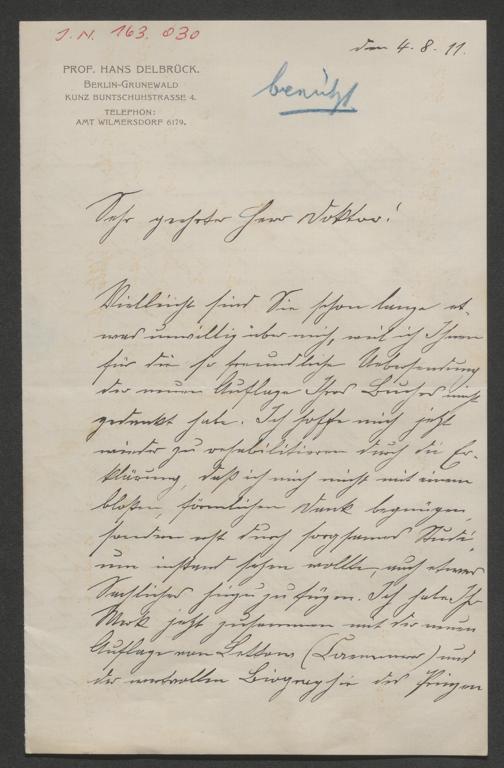 J. N. 163. 030
den 4. 8. 11.
PROF. HANS DELBRÜCK.
BERLIN-GRUNEWALD
KUNZ BUNTSCHUHSTRASSE 4.
TELEPHON:
AMT WILMERSDORF 6179.
benützt
Sehr geehrter Herr Doktor!
Vielleicht sind Sie schon lange et-
was unwillig über mich, weil ich Ihnen
für die so freundliche Uebersendung
der neuen Auflage Ihres Buches nicht
gedankt habe. Ich hoffe mich jetzt
wieder zu rehabilitieren durch die Er-
klärung, daß ich mich nicht mit einem
bloßen, förmlichen Dank begnügen,
sondern erst durch sorgsames Studi-
um instand setzen wollte, auch etwas
Sachliches hinzuzufügen. Ich habe Ihr
Werk jetzt zusammen mit der neuen
Auflage von Lettow (Caemmerer) und
der wertvollen Biographie des Prinzen